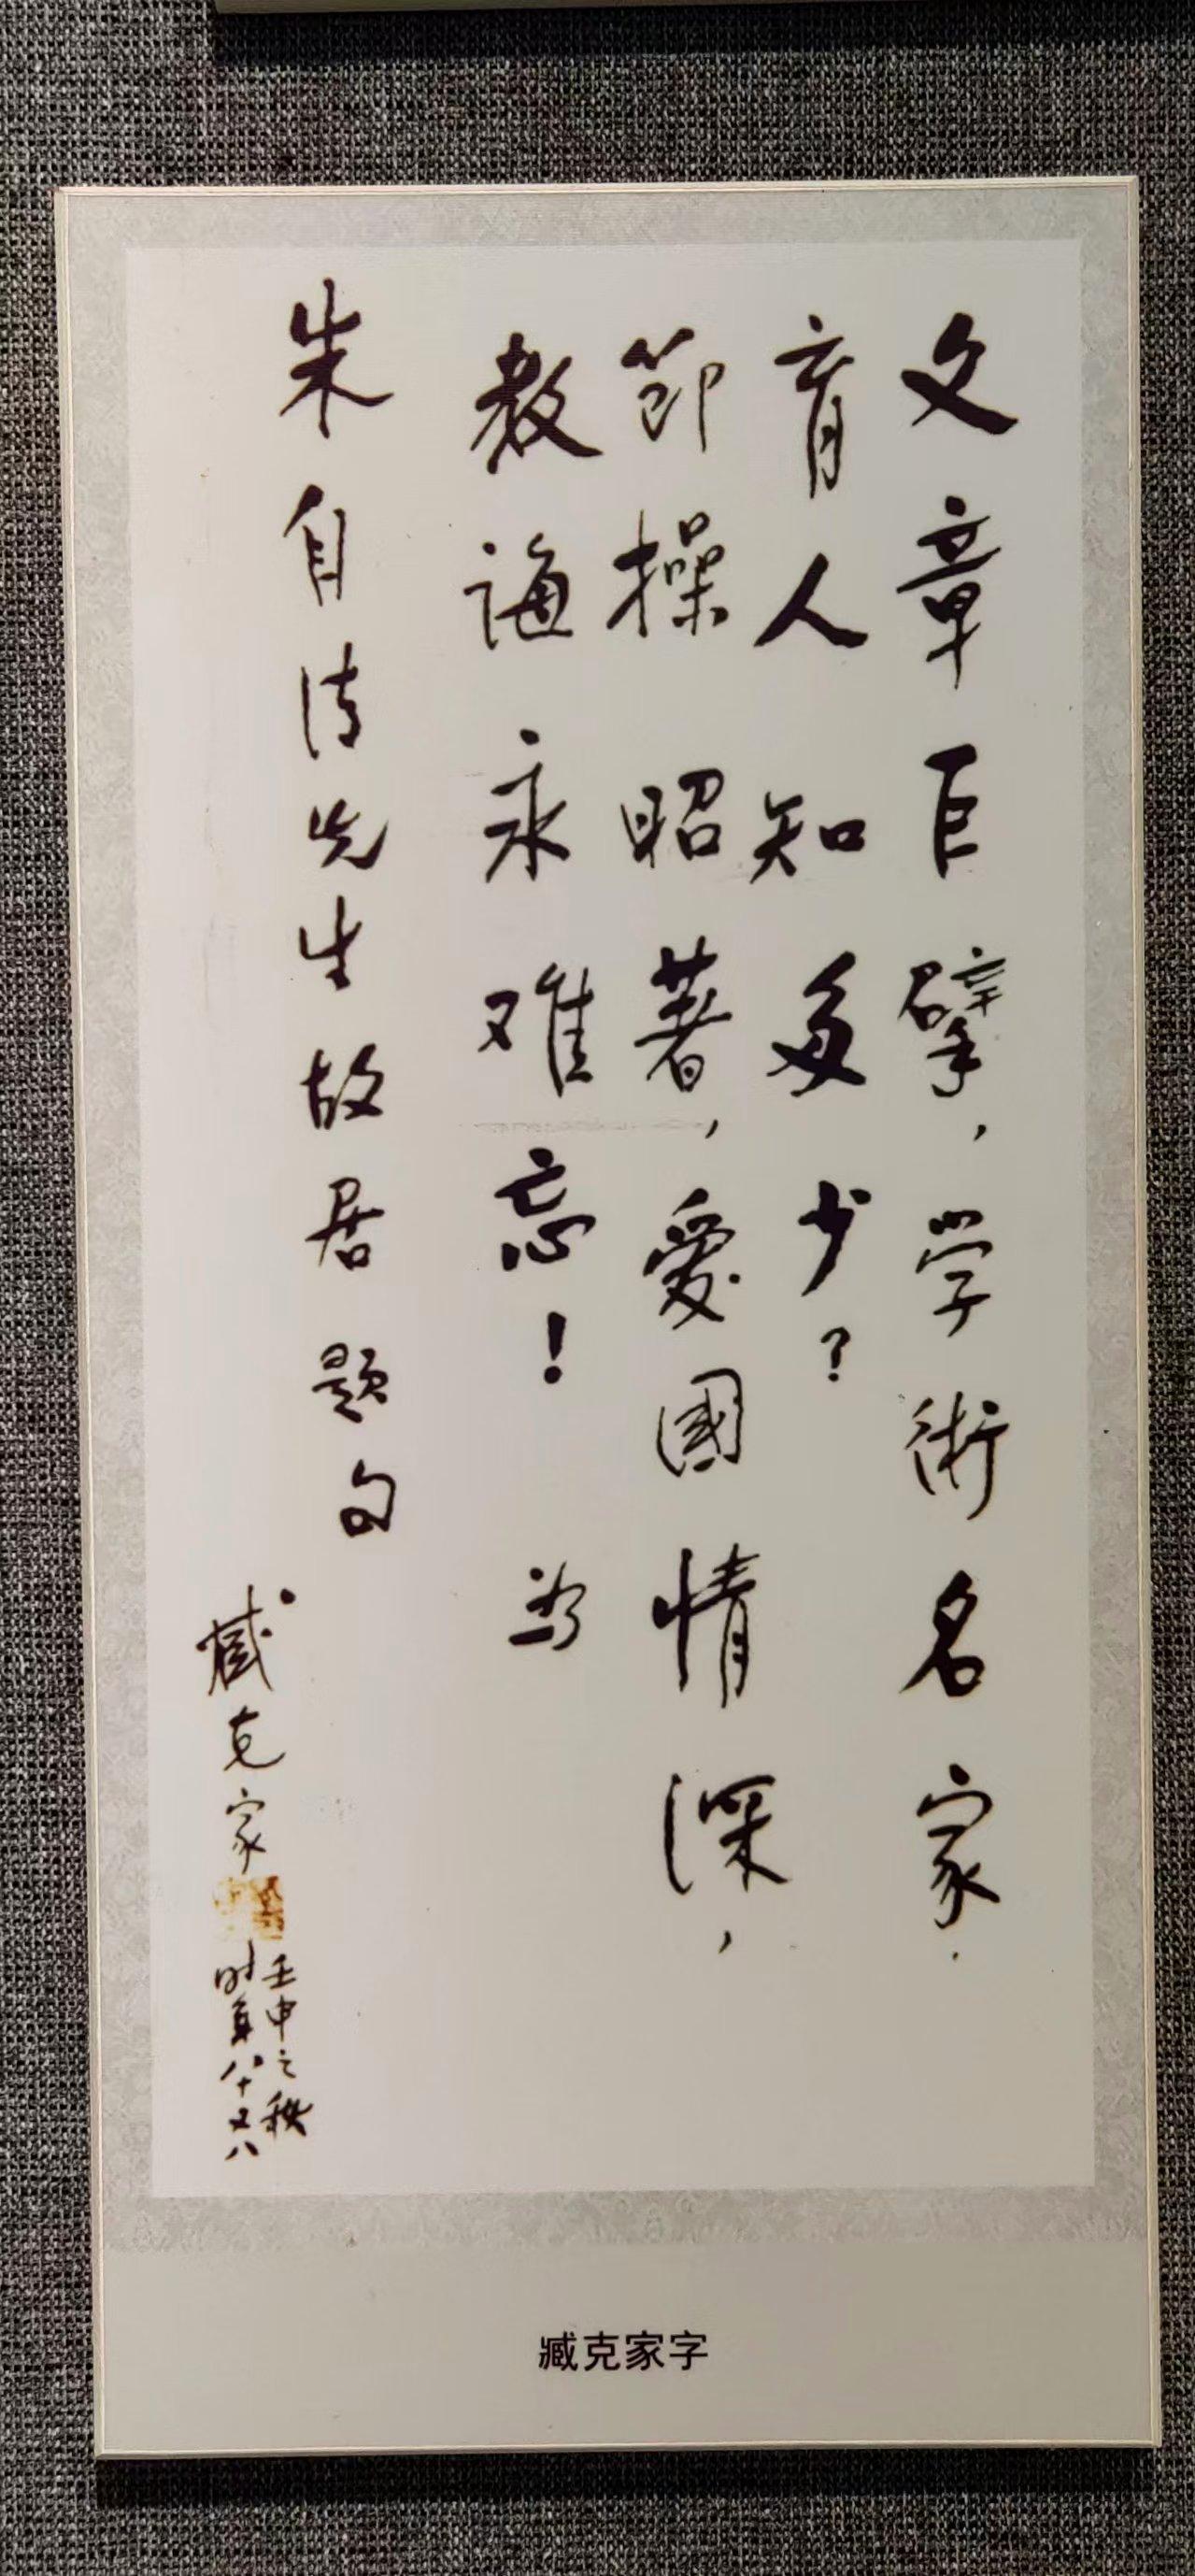 文章巨擘，学術名家．
育人知多少？
節操昭著，愛國情深，
教誨永难忘！为
朱自清先生故居题句
臧克家
壬申之秋
时年八十又八
臧克家字